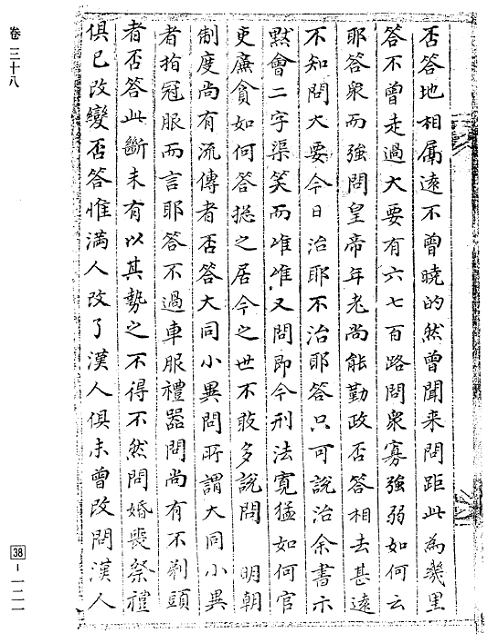 否答地相屬遠不曾曉的然曾聞来問距此為幾里
答不曾走過大要有六七百路問衆寡強弱如何云
耶答衆而強問皇帝年老尚能勤政否答相去甚遠
不知問大要今日治耶不治耶答只可說治余書示
黙會二字渠笑而唯唯又問即今刑法寬猛如何官
吏廉貪如何答捴之居今之世不敢多說問 明朝
制度尚有流傳者否答大同小異問所謂大同小異
者指冠服而言耶答不過車服禮器問尚有不剃頭
者否答此斷未有以其勢之不得不然問婚喪祭禮
俱已改變否答惟滿人改了漢人俱未曾改問漢人
卷三十八
38-一二一